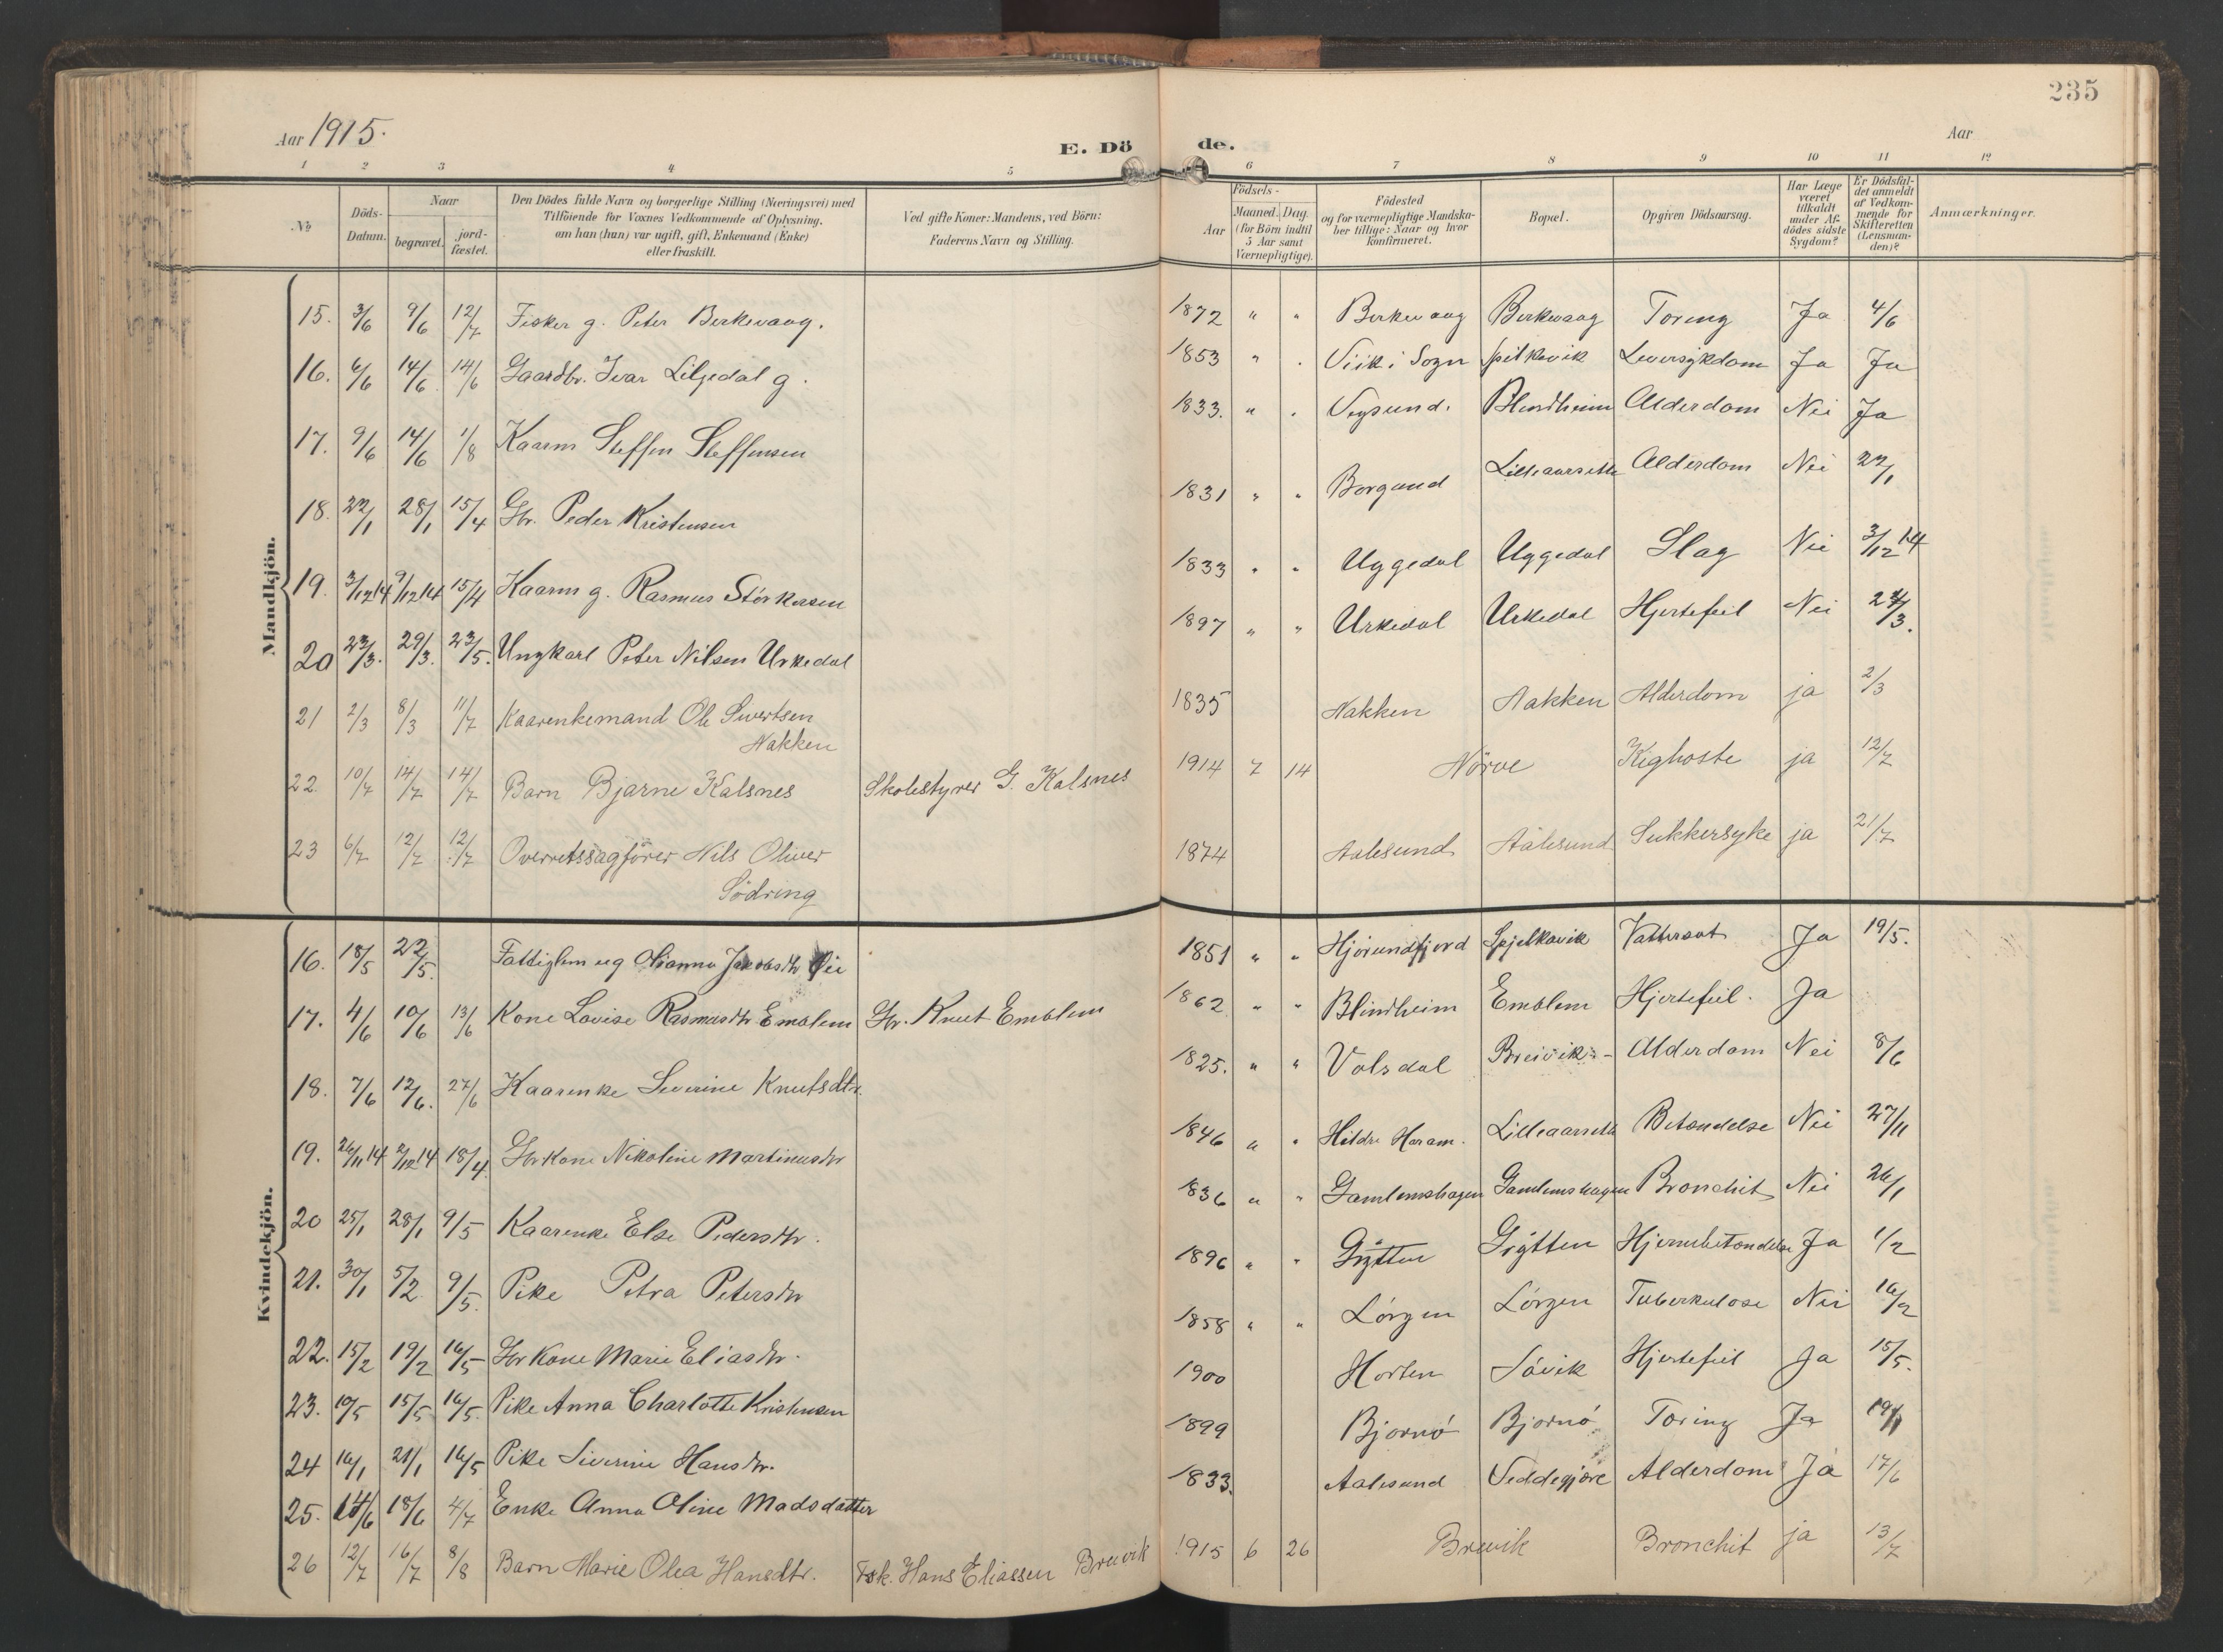 235
Aar 1915.
E. Döde.
Aar
1 2 3 4 5 6 7 8 9 10 11 12
No
Döds-Datum.
Naar
begravet.
jord-fæstet.
Den Dödes fulde Navn og borgerlige Stilling (Næringsvei) med
Tilföiende for Voxnes Vedkommende af Oplysning,
om han (hun) var ugift, gift, Enkemand (Enke)
eller fraskilt.
Ved gifte Koner: Mandens, ved Börn:
Faderens Navn og Stilling.
Födsels-
Aar
Maaned. Dag.
(for Börn indtil
5 Aar samt
Værnepligtige).
Födested
og for værnepligtige Mandska-
ber tillige: Naar og hvor
konfirmeret.
Bopæl.
Opgiven Dödsaarsag.
Har Læge
været
tilkaldt
under Af-
dödes sidste
Sygdom?
Er Dödsfal-
det anmeldt
af Vedkom-
mende for
Skifteretten
(Lensman-
den)?
Anmærkninger.
Mandkjön.
15. 3/6 9/6 12/7 Fisker g. Peter Berkevaag. 1872 " " Berkevaag Berkevaag Toring Ja 4/6
16. 6/6 14/6 14/6 Gaardbr. Ivar Liljedal g. 1853 " . Viik i Sogn Spilkevik Leversykdom Ja Ja
17. 9/6 14/6 1/8 Kaarm Steffen Steffensen 1833. " . Vegsund. Blindheim Alderdom Nei Ja
18. 22/1 28/1 15/4 Gbr. Peder Kristensen 1831 " " Borgund Lilleaarseth Alderdom Nei 22/1
19. 3/12 14 9/12 14 15/4 Kaarm g. Rasmus Störkersen 1833 " " Uggedal Uggedal Slag Nei 3/12 14
20 23/3. 29/3. 23/5. Ungkarl Peter Nilsen Urkedal 1897 " " Urkedal Urkedal Hjertefeil Nei 24/3.
21 2/3 8/3 11/7 Kaarenkemand Ole Sivertsen
Nakken 1835 Nakken Nakken Alderdom ja 2/3
22 10/7 14/7 14/7 Barn Bjarne Kalsnes Skolestyrer G. Kalsnes 1914 7 14 Nörve Kighoste ja 12/7
23 6/7 12/7 12/7 Overretssagförer Nils Oliver
Södring 1874 Aalesund Aalesund Sukkersyke ja 21/7
Kvindekjön.
16. 18/5 22/5. Fattiglem ug Olianna Jakobsdtr 1851 " " Hjörundfjord Spjelkavik Vattersot Ja 19/5.
17. 4/6 10/6 13/6 Kone Lovise Rasmusdtr Emblem Gbr. Knut Emblem 1862 " " Blindheim Emblem Hjertefeil. Ja
18. 7/6 12/6. 27/6 Kaarenke Severine Knutsdtr. 1825. " " Volsdal Breivik Alderdom Nei 8/6
19. 26/11 14 2/12 14 18/4 Gbr Kone Nikoline Martinusdtr 1846 " " Hildre Haram. Lilleaarseth Betændelse Nei 27/11
20 25/1 28/1 9/5 Kaarenke Else Pedersdtr. 1836 " " Gamlemshagen Gamlemshagen Bronchit Nei 26/1
21. 30/1 5/2 9/5. Pike Petra Petersdtr 1896 " " Grytten Grytten Hjernebetændelse Ja 1/2
22. 15/2 19/2 16/5 Gbr Kone Marie Eliasdtr. 1858 " " Lörgen Lörgen Tuberkulose Nei 16/2
23. 10/5 15/5 16/5. Pike Anna Charlotte Kristensen 1900 Horten Sövik Hjertefeil Ja 15/5.
24 16/1 21/1 16/5 Pike Siverine Hansdtr. 1899 Bjornö Bjornö Toring Ja
25. 14/6 18/6 4/7 Enke Anna Oline Madsdatter 1833. Aalesund Veddegjöre Alderdom Ja 17/6
26 12/7 16/7 8/8 Barn Marie Olea Hansdtr. Fsk. Hans Eliassen Breivik 1915 6 26 Breivik Bronchit ja 13/7